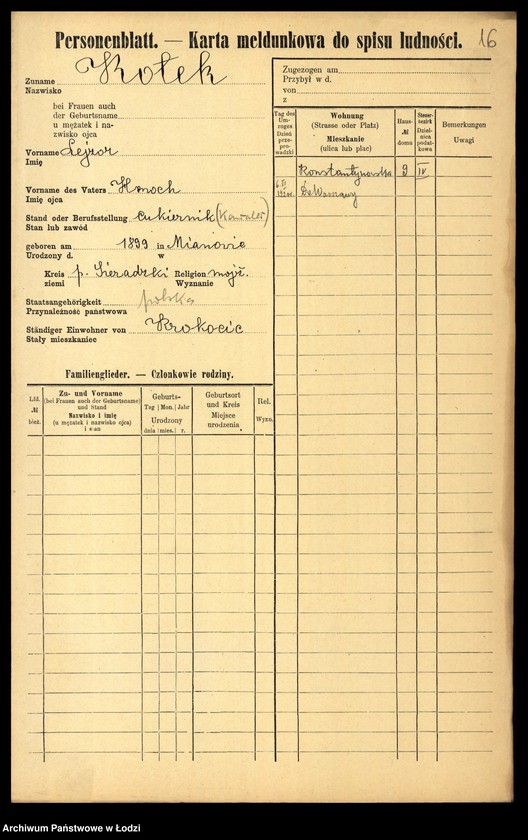 Personenblatt. — Karta meldunkowa do spisu ludności. 16
Zuname Kołek
Nazwisko
bei Frauen auch
der Geburtsname
u mężatek i na-
zwisko ojca
Vorname Lejzor
Imię
Vorname des Vaters Henoch
Imię ojca
Stand oder Berufsstellung cukiernik (kawaler)
Stan lub zawód
geboren am 1899 in Mianovie
Urodzony d. w
Kreis p. Sieradzki Religion mojż.
ziemi Wyznanie
Staatsangehörigkeit polska
Przynależność państwowa
Ständiger Einwohner von Krokocic
Stały mieszkaniec
Familienglieder. — Członkowie rodziny.
Lfd.
№
bież.
Zu- und Vorname
(bei Frauen auch der Geburtsname)
und Stand
Nazwisko i imię
(u mężatek i nazwisko ojca)
i stan
Geburts-
Tag Mon. Jahr
Urodzony
dnia mies. r.
Geburtsort
und Kreis
Miejsce
urodzenia
Rel.
Wyzn.
Zugezogen am
Przybył w d.
von
z
Tag des
Um-
zuges
Dzień
prze-
pro-
wadzki
Wohnung
(Strasse oder Platz)
Mieszkanie
(ulica lub plac)
Haus-
№
domu
Steuer-
bezirk
Dziel-
nica
podat-
kowa
Bemerkungen
Uwagi
Konstantynowska 9 IV
Do Warszawy
Archiwum Państwowe w Łodzi